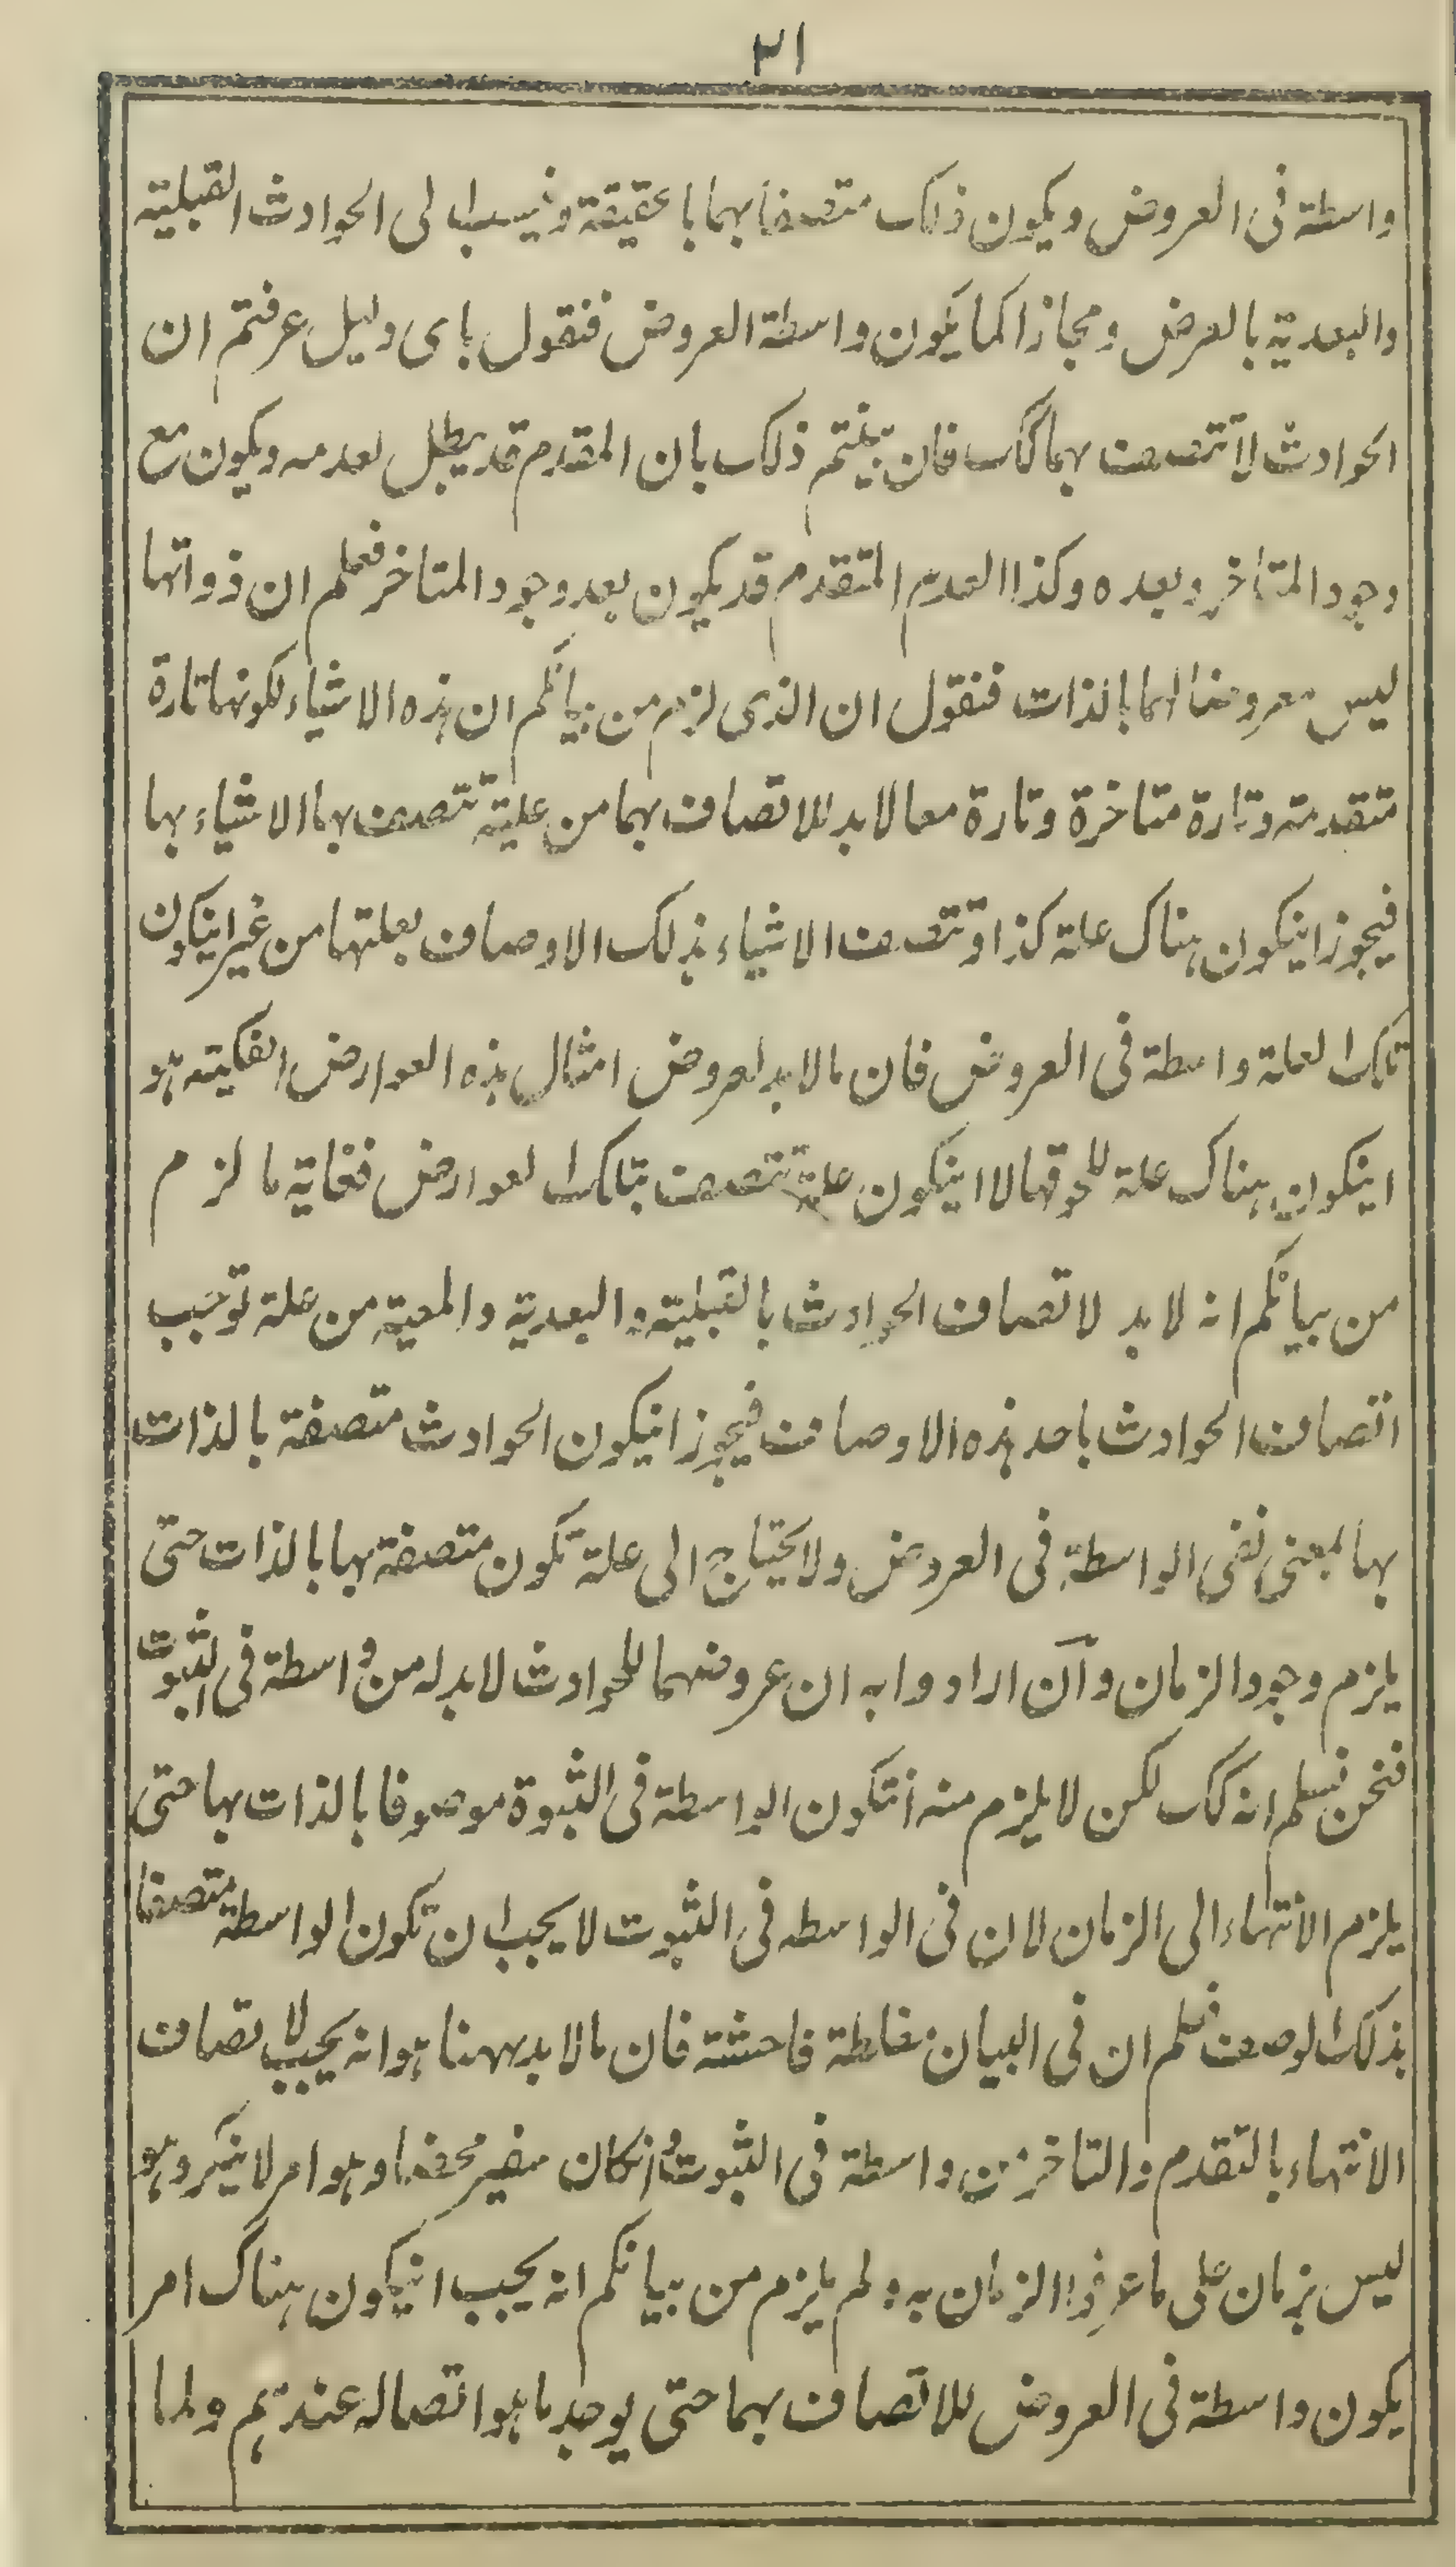 ٣١
واسطة فى العروض ويكون ذلك متصفا بهما بالحقيقة وينسب الى الحوادث القبلية
والبعدية بالعرض ومجازا كما يكون واسطة العروض فنقول باى دليل عرفتم ان
الحوادث لا تتصف بهما كك فان بينتم ذلك بان المقدم قد يبطل بعدمه ويكون مع
وجود المتأخر وبعده وكذا العدم المتقدم قد يكون بعد وجود المتاخر فعلم ان ذواتها
ليس معروضا لهما بالذات فنقول ان الذى لزم من بيانكم ان هذه الاشياء لكونها تارة
متقدمة وتارة متاخرة وتارة معا لا بد للاتصاف بهما من علية تتصف بها الاشياء بها
فيجوز انيكون هناك علة كذا وتتصف الاشياء بذلك الاوصاف بعلتها من غير انيكون
تلك العلة واسطة فى العروض فان ما لا بد لعروض امثال هذه العوارض المفكية هو
انيكون هناك علة للحوقها لا انيكون علة تتصف بتلك العوارض فغاية ما لزم
من بيانكم انه لا بد لاتصاف الحوادث بالقبلية والبعدية والمعية من علة توجب
اتصاف الحوادث باحد هذه الاوصاف فيجوز انيكون الحوادث متصفة بالذات
بها بمعنى نفى الواسطة فى العروض ولا يحتاج الى علة تكون متصفة بها بالذات حتى
يلزم وجود الزمان وآن ارادوا به ان عروضهما للحوادث لا بد له من واسطة فى الثبوت
فنحن نسلم انه كك لكن لا يلزم منه انتكون الواسطة فى الثبوة موصوفا بالذات بها حتى
يلزم الانتهاء الى الزمان لان فى الواسطه فى الثبوت لا يجب ان تكون الواسطة متصفا
بذلك الوصف فعلم ان فى البيان مغلطة فاحشة فان ما لا بد ههنا هو انه يجب لاتصاف
الانتهاء بالتقدم والتاخر من واسطة فى الثبوت وانكان سفير محضا وهو امر لا ينكر وهو
ليس بزمان على ما عرفوا الزمان به ولم يلزم من بيانكم انه يجب انيكون هناك امر
يكون واسطة فى العروض للاتصاف بهما حتى يوجد ما هو اتصاله عندهم ولما